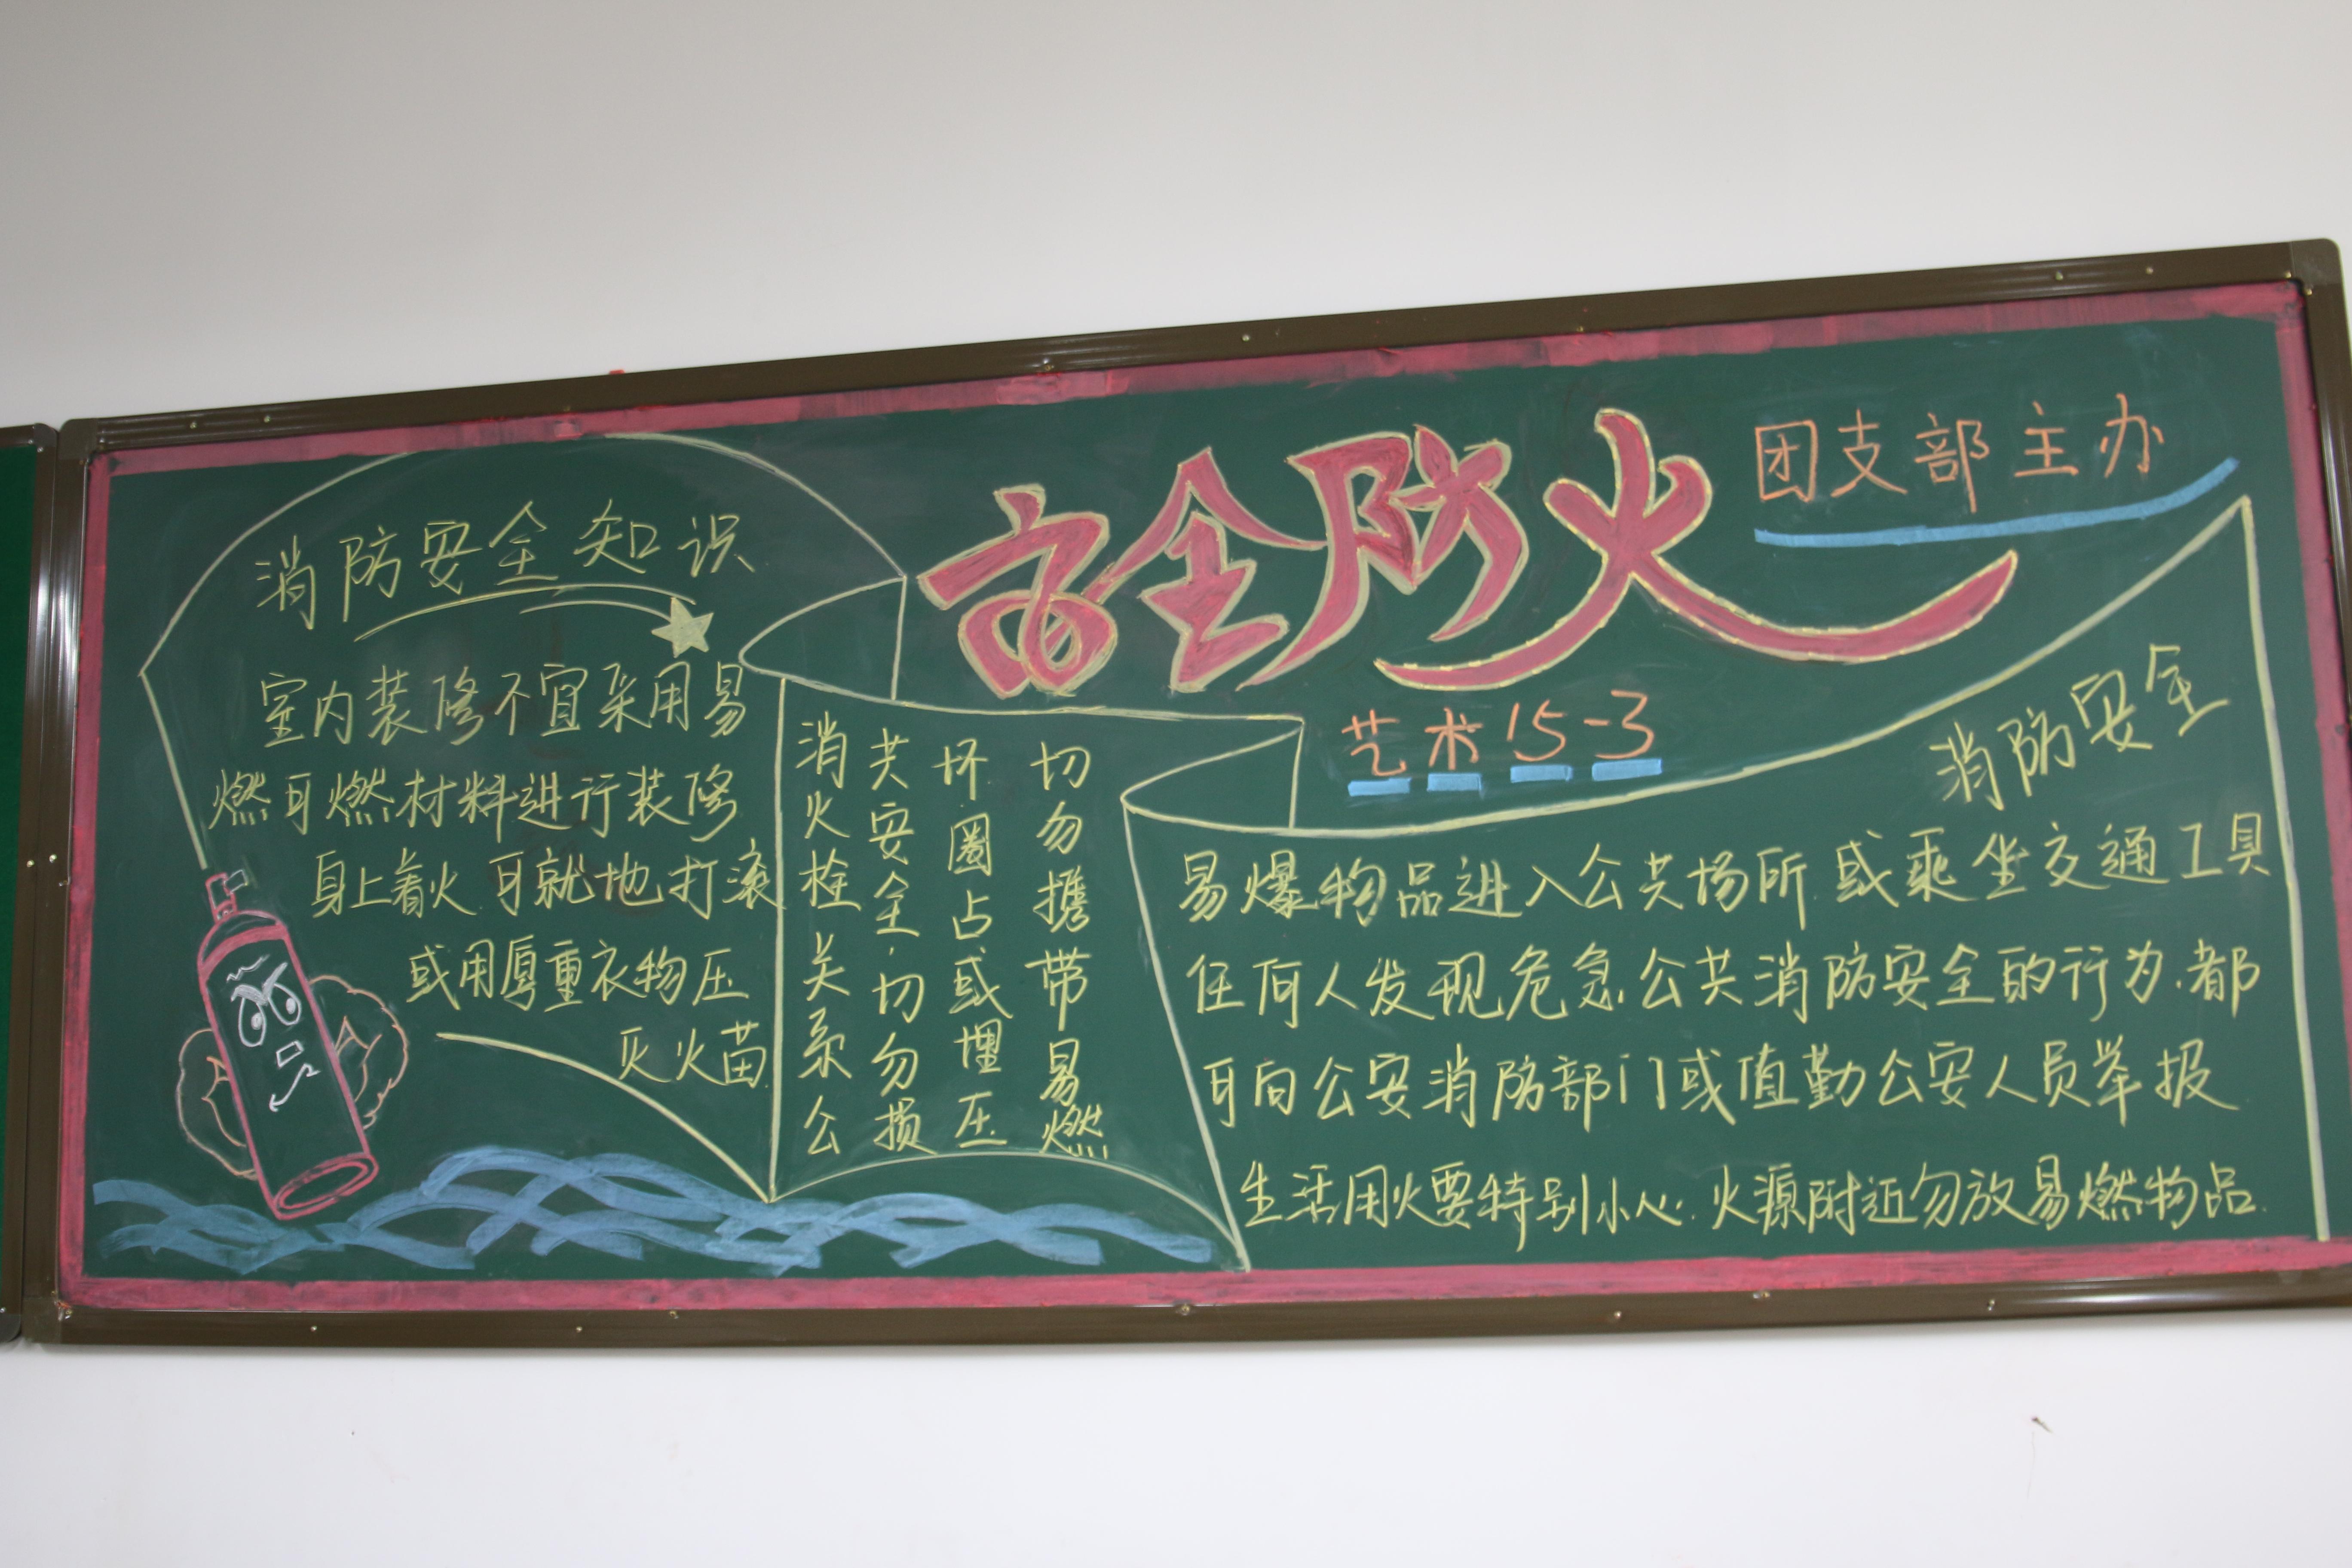 安全防火
团支部主办
艺术15-3
消防安全知识
室内装修不宜采用易
燃可燃材料进行装修
身上着火可就地打滚
或用厚重衣物压
灭火苗
消火栓关系公
共安全,切勿损
坏圈占或埋压
切勿携带易燃
消防安全
易爆物品进入公共场所或乘坐交通工具
任何人发现危急公共消防安全的行为.都
可向公安消防部门或值勤公安人员举报
生活用火要特别小心.火源附近勿放易燃物品.